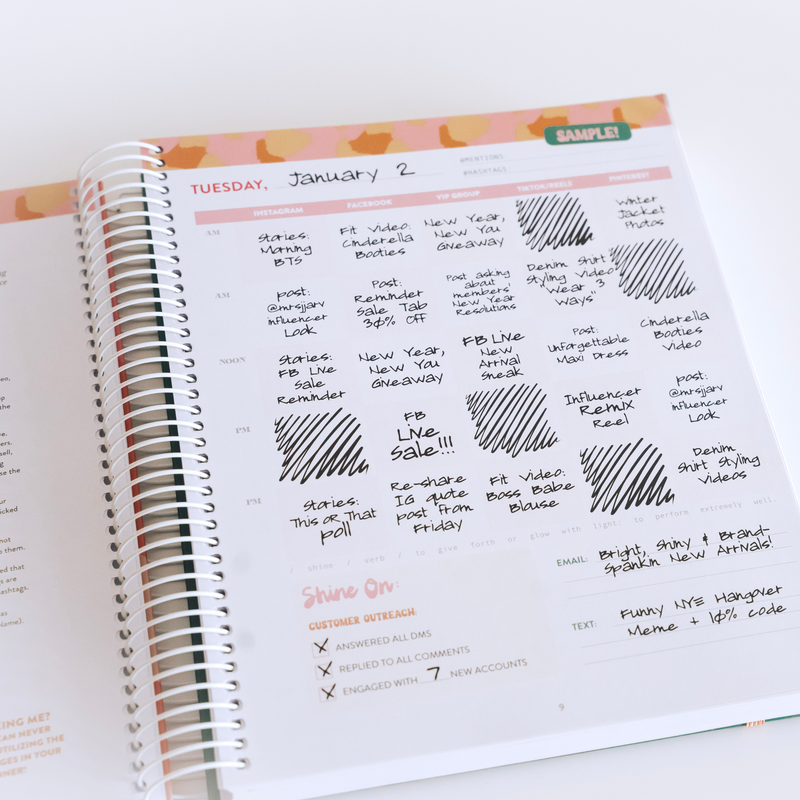 SAMPLE!
TUESDAY, January 2
@MENTIONS:
#HASHTAGS:
INSTAGRAM FACEBOOK VIP GROUP TIKTOK/REELS PINTEREST
AM
Stories:
Morning
BTS
Fit Video:
Cinderella
Booties
New Year,
New You
Giveaway
Winter
Jacket
Photos
AM
post:
@mrsjjarv
influencer
Look
Post:
Reminder
Sale Tab
30% Off
Post asking
about
members'
New Year
Resolutions
Denim Shirt
Styling Video
"Wear 3
Ways"
NOON
Stories:
FB Live
Sale
Reminder
New Year,
New You
Giveaway
FB Live
New
Arrival
Sneak
Post:
Unforgettable
Maxi Dress
Cinderella
Booties
Video
PM
FB
Live
Sale!!!
Influencer
Remix
Reel
post:
@mrsjjarv
influencer
Look
PM
Stories:
This or That
poll
Re-share
IG quote
post from
Friday
Fit Video:
Boss Babe
Blouse
Denim
Shirt Styling
Videos
/ shine / verb / to give forth or glow with light. to perform extremely well.
Shine On:
CUSTOMER OUTREACH:
X ANSWERED ALL DMS
X REPLIED TO ALL COMMENTS
X ENGAGED WITH 7 NEW ACCOUNTS
EMAIL: Bright, Shiny & Brand-
Spankin New Arrivals!
TEXT: Funny NYE Hangover
Meme + 10% code
9